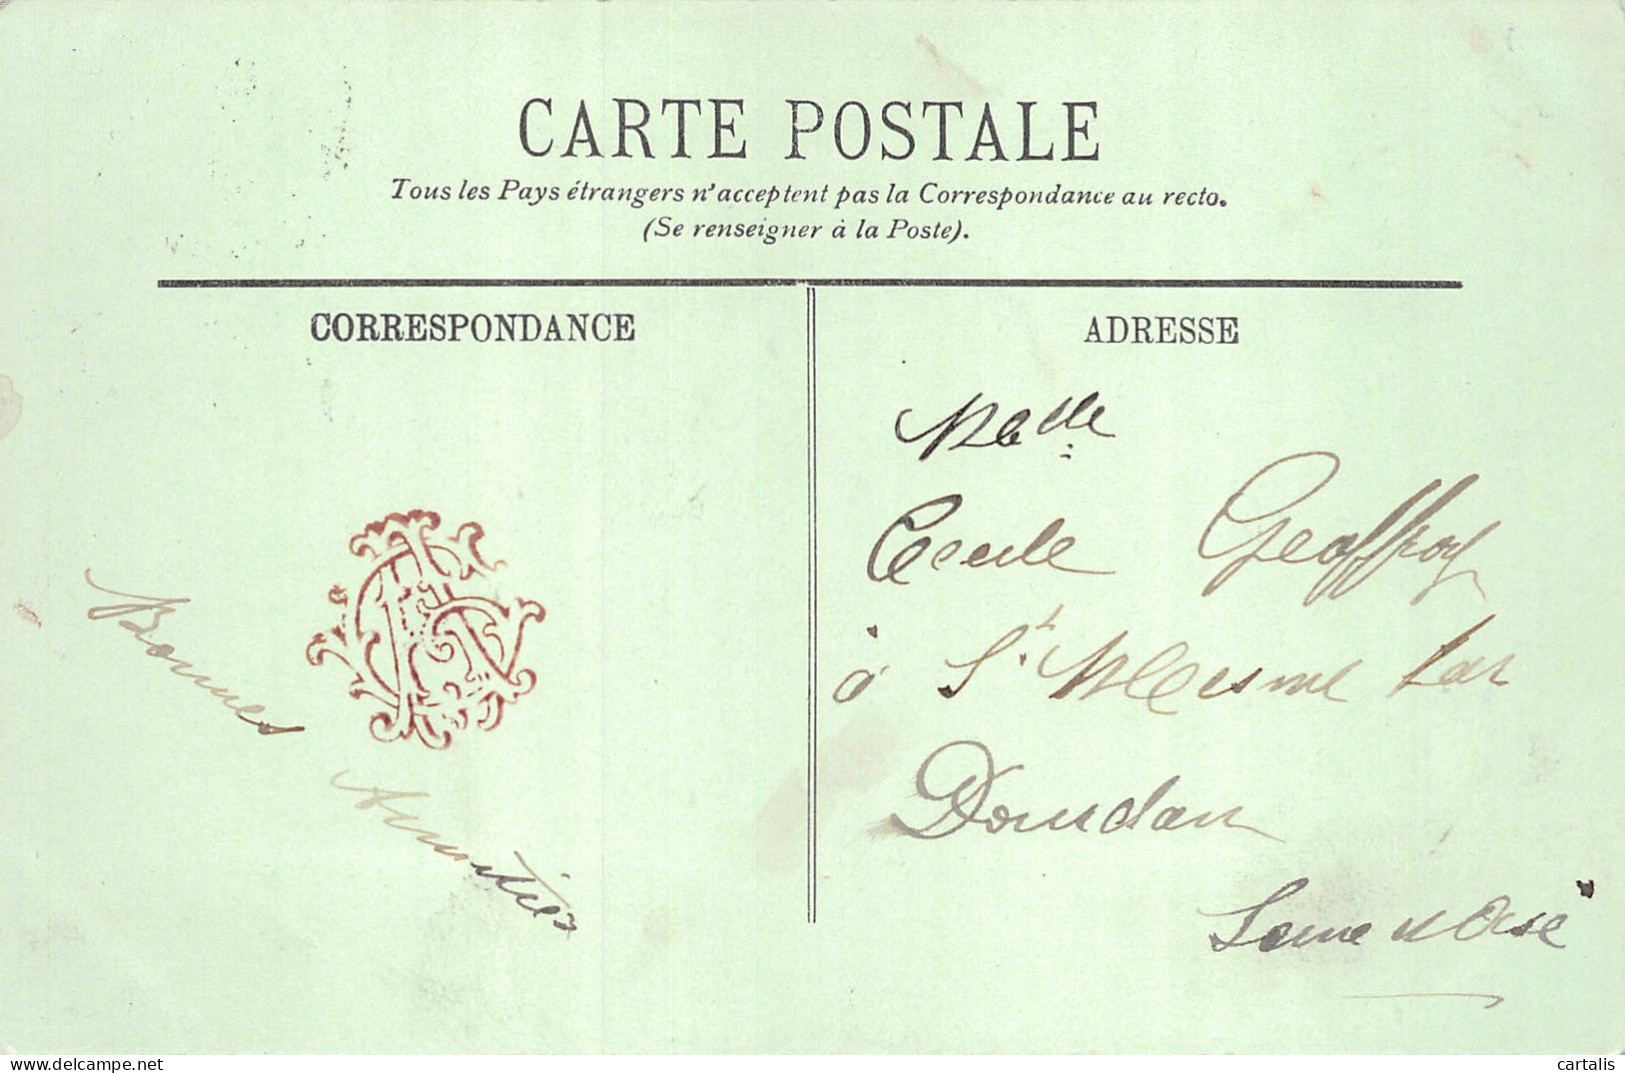 CARTE POSTALE
Tous les Pays étrangers n'acceptent pas la Correspondance au recto.
(Se renseigner à la Poste).
CORRESPONDANCE
ADRESSE
Melle
Cecile Geoffroy
à St Mesme par
Dourdan
Seine et Oise
Bonnes
Amitiés
cartalis
delcampe.net